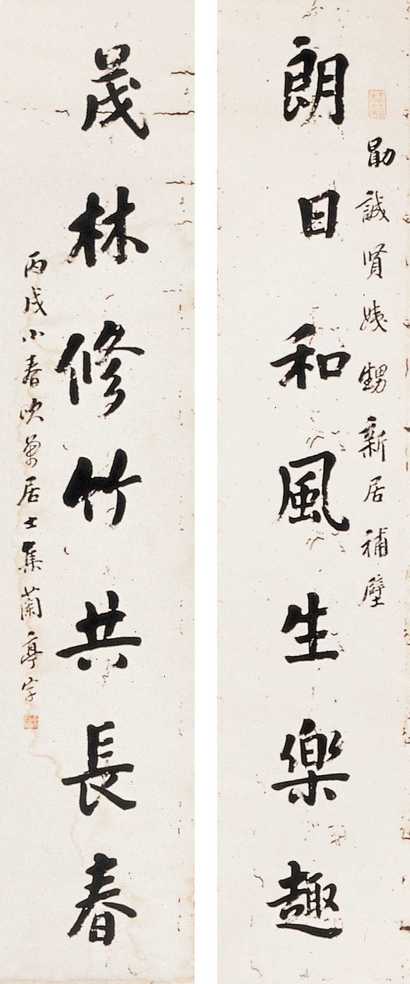 勛誠賢姨甥新居補壁
朗日和風生樂趣
茂林修竹共長春
丙戌小春吷菴居士集蘭亭字